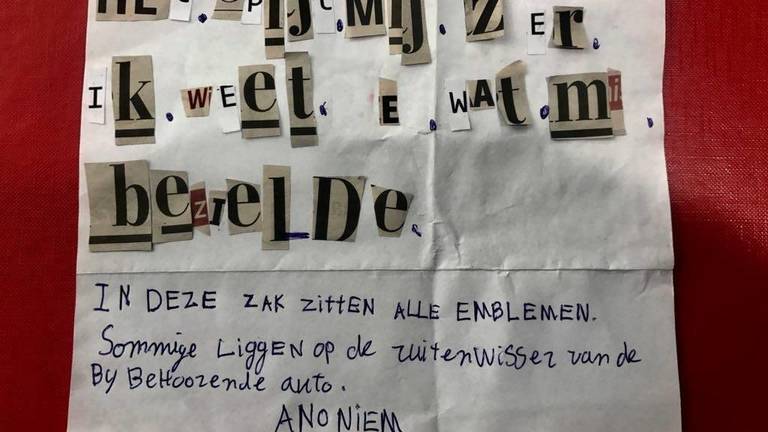 HEt.spijt.Mij.ZEr.
Ik.WEet.E.WAt.mij.
beZielDe.
IN DEZE ZAK zittEN ALLE EMBLEMEN.
Sommige LiggEN op de ruitenwisser van de
By BeHoorende auto.
ANONiEM